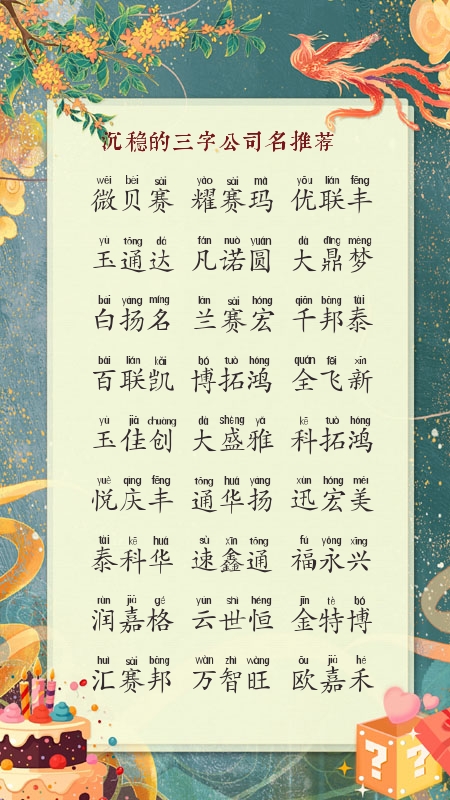 沉稳的三字公司名推荐
wēi bèi sài yào sài mǎ yōu lián fēng
微贝赛 耀赛玛 优联丰
yù tōng dá fán nuò yuán dà dǐng mèng
玉通达 凡诺圆 大鼎梦
bái yáng míng lán sài hóng qiān bāng tài
白扬名 兰赛宏 千邦泰
bǎi lián kǎi bó tuò hóng quán fēi xīn
百联凯 博拓鸿 全飞新
yù jiā chuàng dà shèng yǎ kē tuò hóng
玉佳创 大盛雅 科拓鸿
yuè qìng fēng tōng huá yáng xùn hóng měi
悦庆丰 通华扬 迅宏美
tài kē huá sù xīn tōng fú yǒng xīng
泰科华 速鑫通 福永兴
rùn jiā gé yún shì héng jīn tè bó
润嘉格 云世恒 金特博
huì sài bāng wàn zhì wàng ōu jiā hé
汇赛邦 万智旺 欧嘉禾